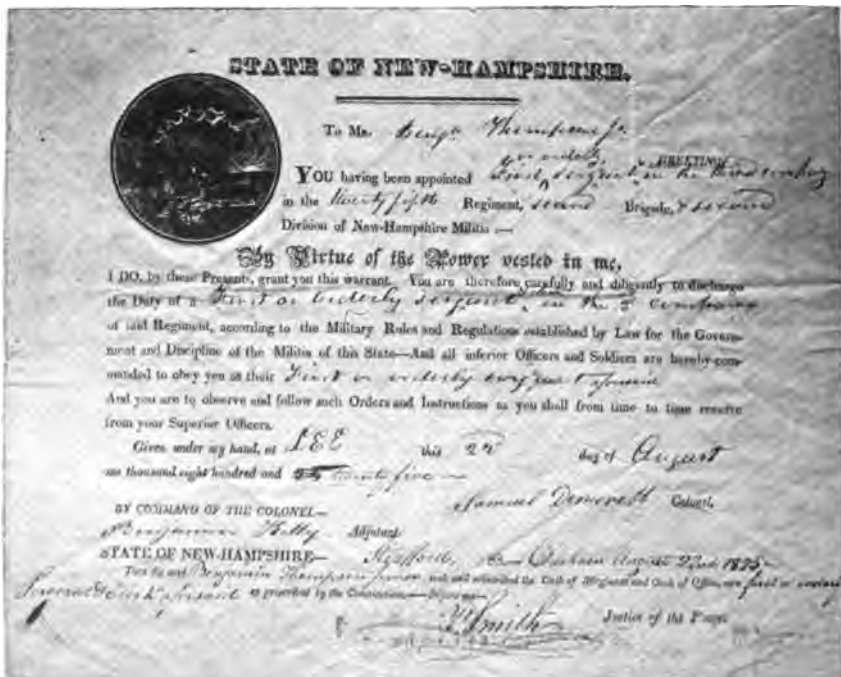 STATE OF NEW-HAMPSHIRE.
To Mr. Benjn Thompson Jr.
or orderly GREETING.
YOU having been appointed First sergent in the third company
in the twenty fifth Regiment, second Brigade, & second
Division of New-Hampshire Militia :—
By Virtue of the Power vested in me,
I DO, by these Presents, grant you this warrant. You are therefore carefully and diligently to discharge
the Duty of a First or orderly sergent in the 3d company
of said Regiment, according to the Military Rules and Regulations established by Law for the Govern-
ment and Discipline of the Militia of this State—And all inferior Officers and Soldiers are hereby com-
manded to obey you as their First or orderly sergent
And you are to observe and follow such Orders and Instructions as you shall from time to time receive
from your Superior Officers.
Given under my hand, at LEE this 22 day of August
one thousand eight hundred and twenty five—
Samuel Demeritt Colonel.
BY COMMAND OF THE COLONEL—
Benjamin Kelly Adjutant.
STATE OF NEW-HAMPSHIRE— Strafford, ss— Durham August 22nd 1825—
Benjamin Thompson junior took and subscribed the Oath of Allegiance and Oath of Office, as first or orderly
as prescribed by the Constitution—Before me—
Smith Justice of the Peace.